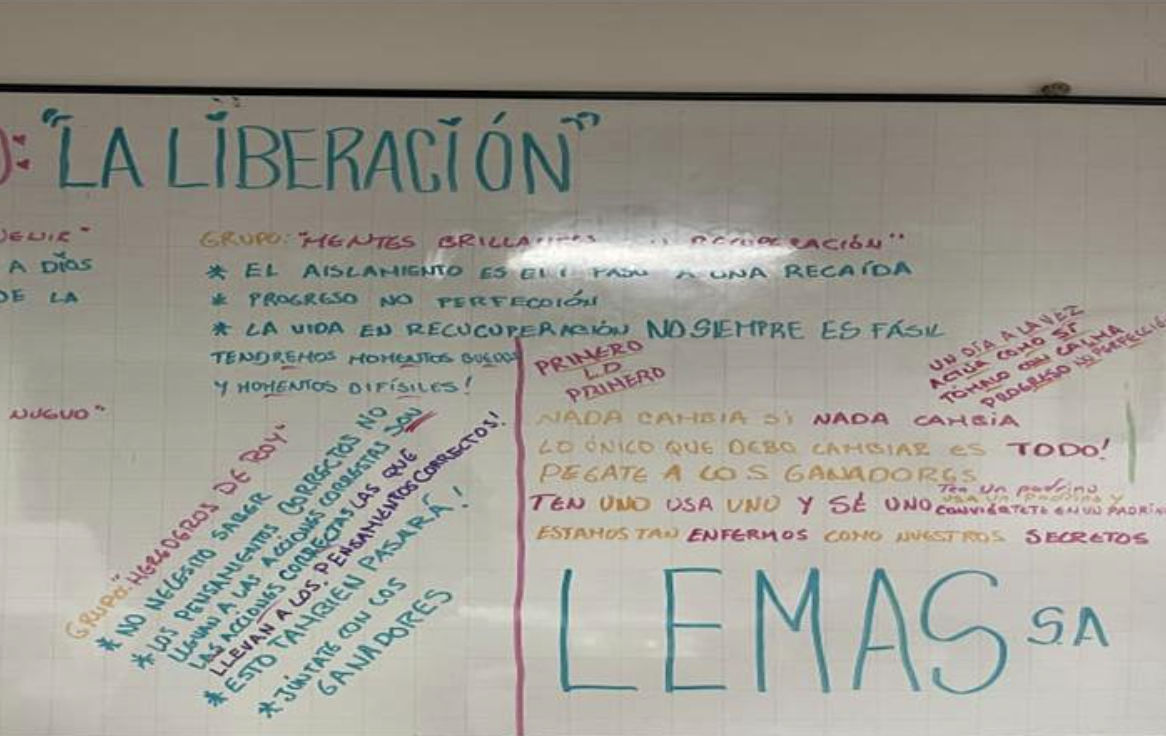 : "LA LIBERACIÓN"
A DÍOS
DE LA
GRUPO: "MENTES
* EL AISLAMIENTO ES EL 1 PASO A UNA RECAÍDA
* PROGRESO NO PERFECCIÓN
* LA VIDA EN RECUCUPERACIÓN NO SIEMPRE ES FÁSIL
TENDREMOS MOMENTOS BUENOS
Y MOMENTOS DIFÍSILES!
GRUPO: "HEREDEROS DE ROY"
* NO NECESITO SABER
* LOS PENSAMIENTOS CORRECTOS NO
LLEVAN A LAS ACCIONES CORRESTAS SON
LAS ACCIONES CORRECTAS LAS QUE
LLEVAN A LOS. PENSAMIENTOS CORRECTOS!
* ESTO TAMBIEN PASARÁ!
* JÚNTATE CON LOS
GANADORES
PRIMERO
LO
PRIMERO
UN DÍA A LA VEZ
ACTÚA COMO SÍ
TÓMALO CON CALMA
PROGRESO NO
NADA CAMBIA SI NADA CAMBIA
LO ÚNICO QUE DEBO CAMBIAR ES TODO!
PEGATE A LOS GANADORES
TEN UNO USA UNO Y SÉ UNO
Ten un padrino
usa un padrino y
CONVIÉRTETE EN UN
ESTAMOS TAN ENFERMOS COMO NUESTROS SECRETOS
LEMAS S.A